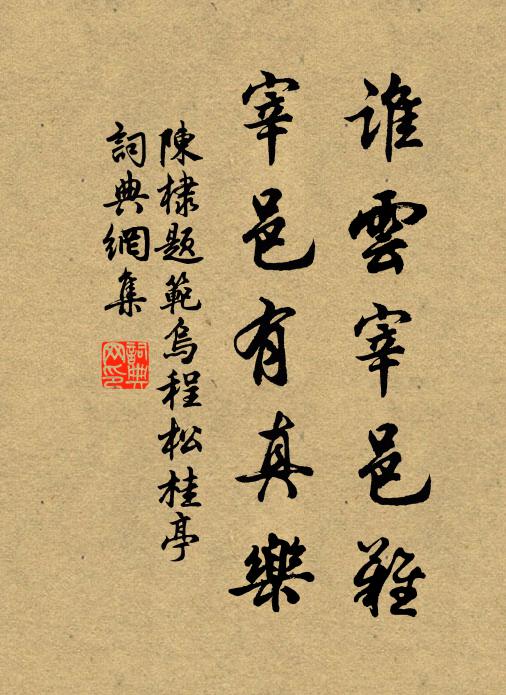 誰雲宰邑難
宰邑有真樂
陳棣題範烏程松桂亭
詞典網集
詞典网印